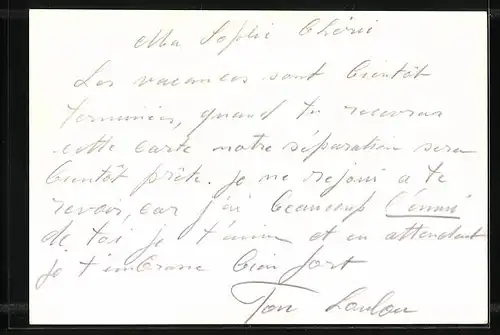 Ma Sophie Chérie
Les vacances sont bientôt
terminées, quand tu recevras
cette carte notre séparation sera
bientôt prête. je ne rejoui a te
revoir, car j'ai beaucoup l'ennui
de toi je t'aime et en attendant
je t'embrasse bien fort
Ton Loulou